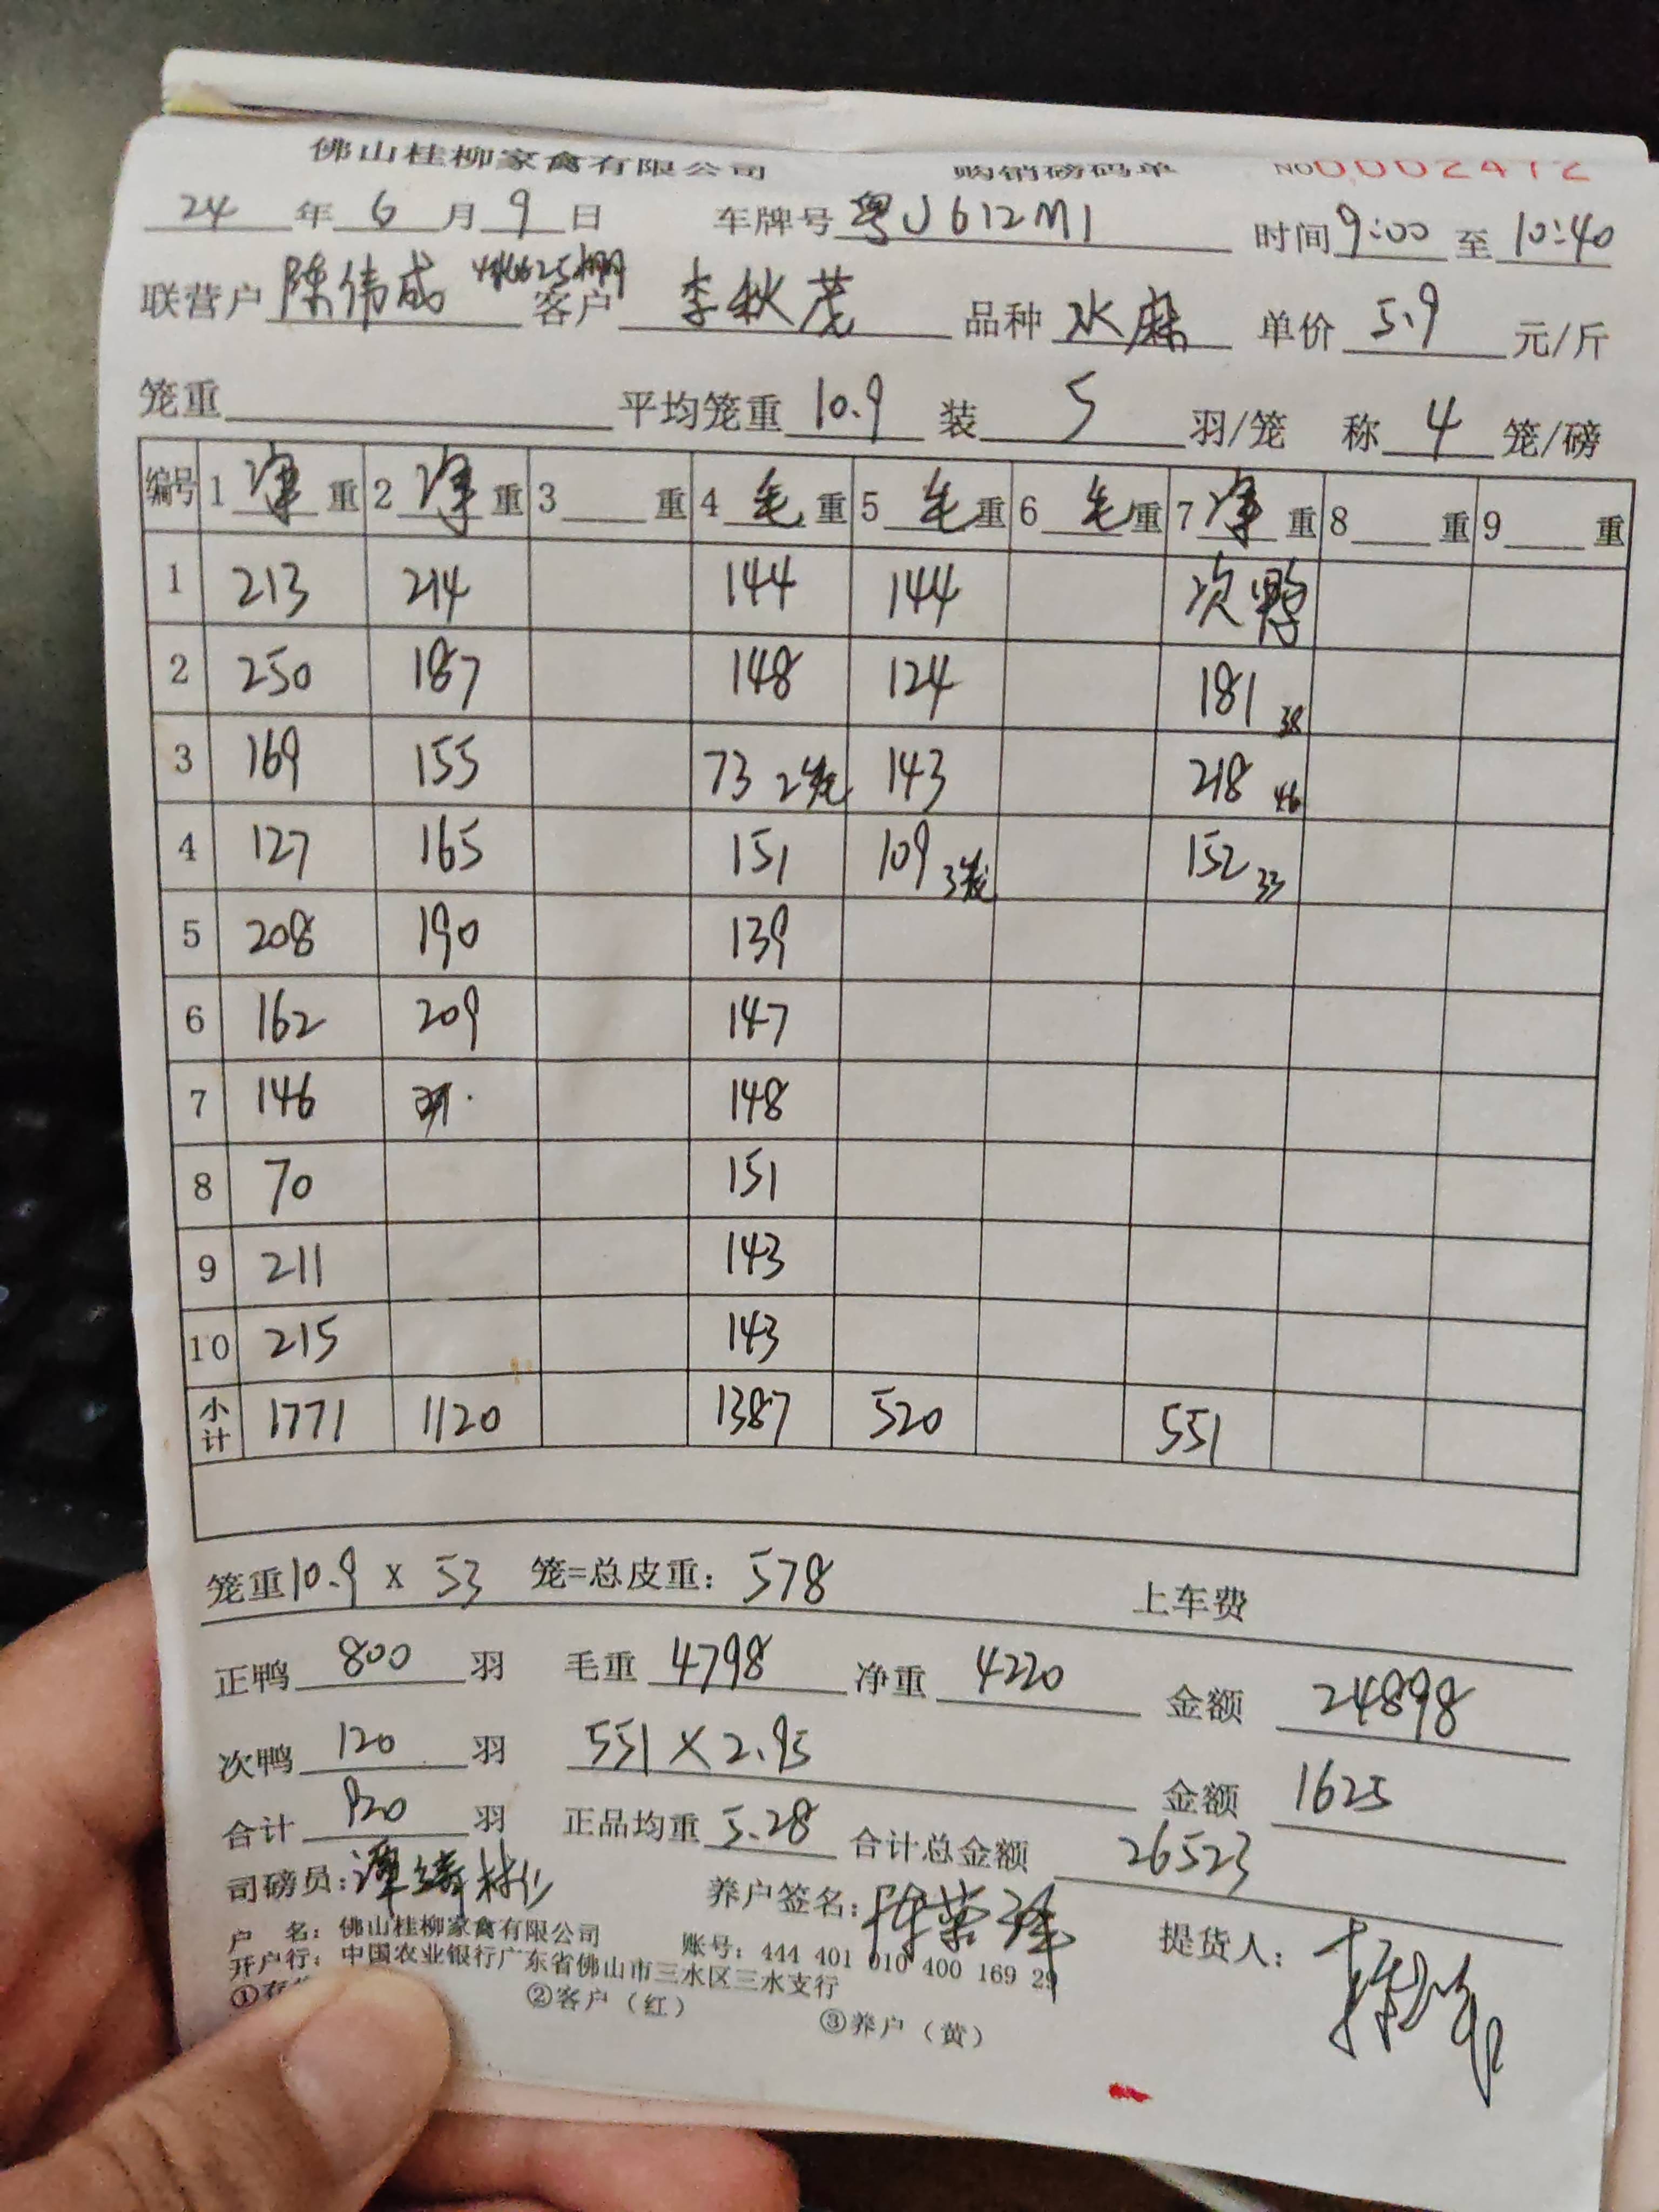 佛山桂柳家禽有限公司 购销磅码单 No0002472
24年6月9日 车牌号粤J612M1 时间9:00至10:40
联营户陈伟成 客户李秋茂 品种水麻 单价5.9元/斤
笼重 平均笼重10.9 装5羽/笼 称4笼/磅
编号 1净重 2净重 3重 4毛重 5毛重 6毛重 7净重 8重 9重
1 213 214 144 144 次鸭
2 250 187 148 124 181 38
3 169 155 73 2笼 143 218 46
4 127 165 151 109 3笼 152 33
5 208 190 139
6 162 209 147
7 146 148
8 70 151
9 211 143
10 215 143
小计 1771 1120 1387 520 551
笼重10.9 X 53 笼=总皮重:578 上车费
正鸭800羽 毛重4798 净重4220 金额24898
次鸭120羽 551×2.95 金额1625
合计920羽 正品均重5.28 合计总金额26523
司磅员: 养户签名: 提货人:
户 名:佛山桂柳家禽有限公司 账号:444 401 010 400 169 29
开户行:中国农业银行广东省佛山市三水区三水支行
①存 ②客户(红) ③养户(黄)